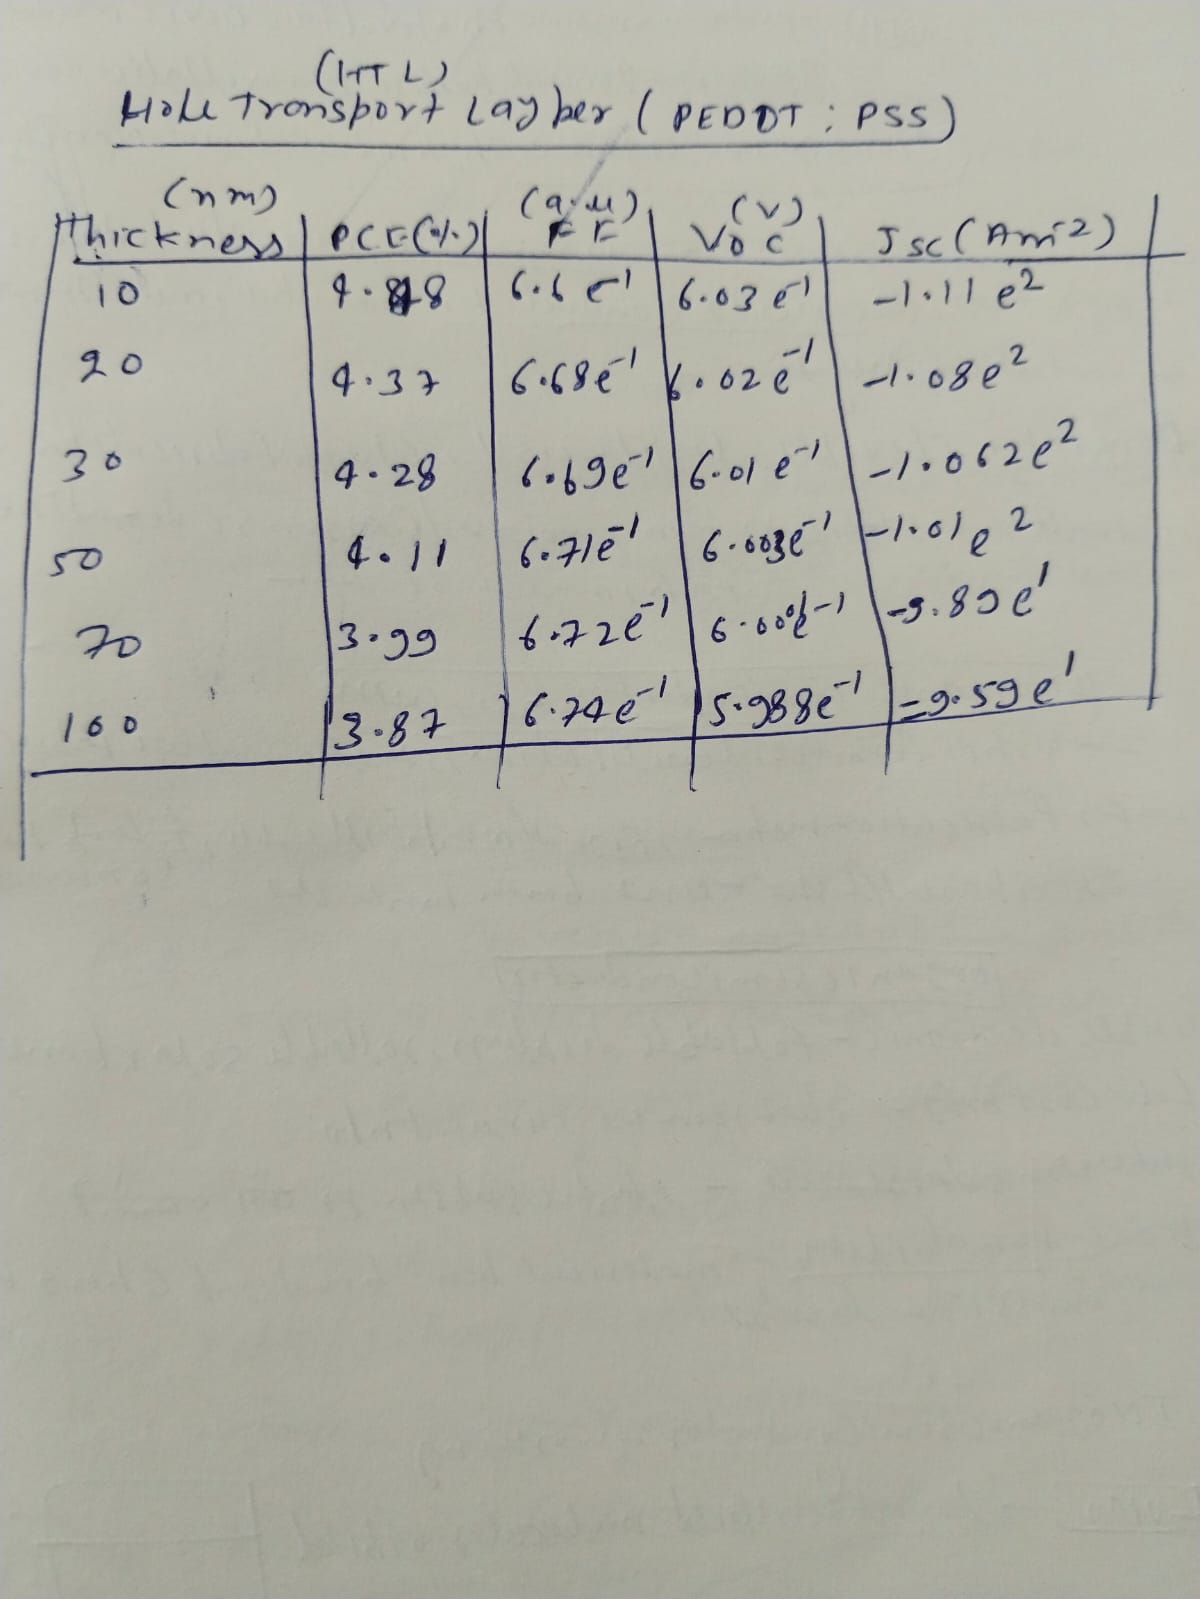 (HTL)
Hole Transport Layber (PEDOT : PSS)
(nm) (a.u) (V)
Thickness PCE(%) FF VOC Jsc (Am-2)
10 6.6 e-1 6.03 e-1 -1.11 e2
20 4.37 6.68e-1 6.02 e-1 -1.08e2
30 4.28 6.69e-1 6.01 e-1 -1.062e2
50 4.11 6.71e-1 6.003e-1 -1.01e2
70 3.99 6.72e-1 -9.89e1
100 3.87 6.74e-1 5.988e-1 -9.59e1